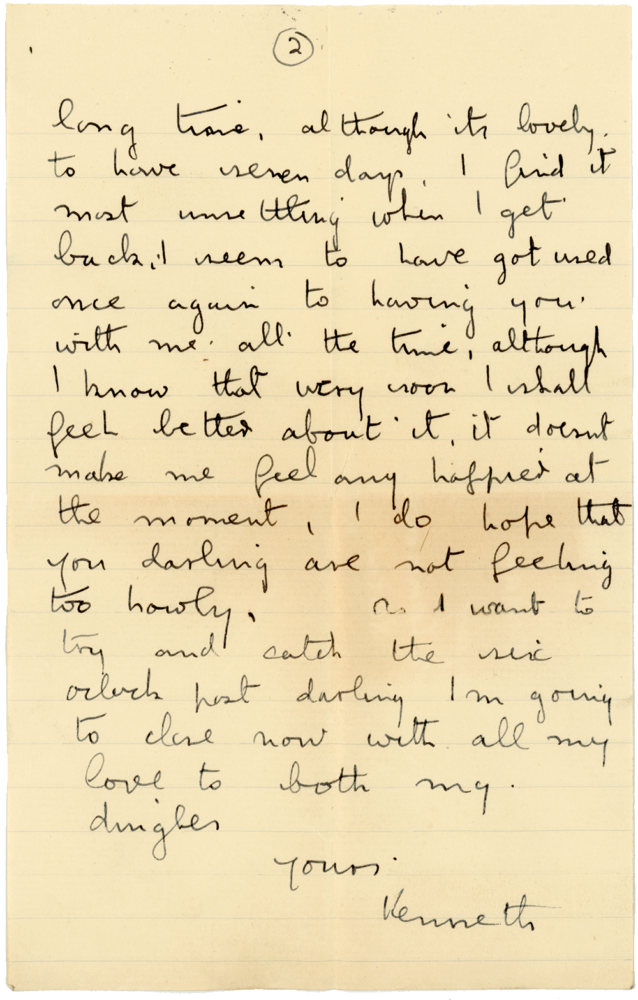 2
long time, although its lovely.
to have seven days, I find it
most unsettling when I get
back, I seem to have got used
once again to having you
with me all the time, although
I know that very soon I shall
feel better about it, it doesnt
make me feel any happier at
the moment, I do hope that
you darling are not feeling
too howly, As I want to
try and catch the six
oclock post darling Im going
to close now with all my
love to both my.
dinghes
yours.
Kenneth